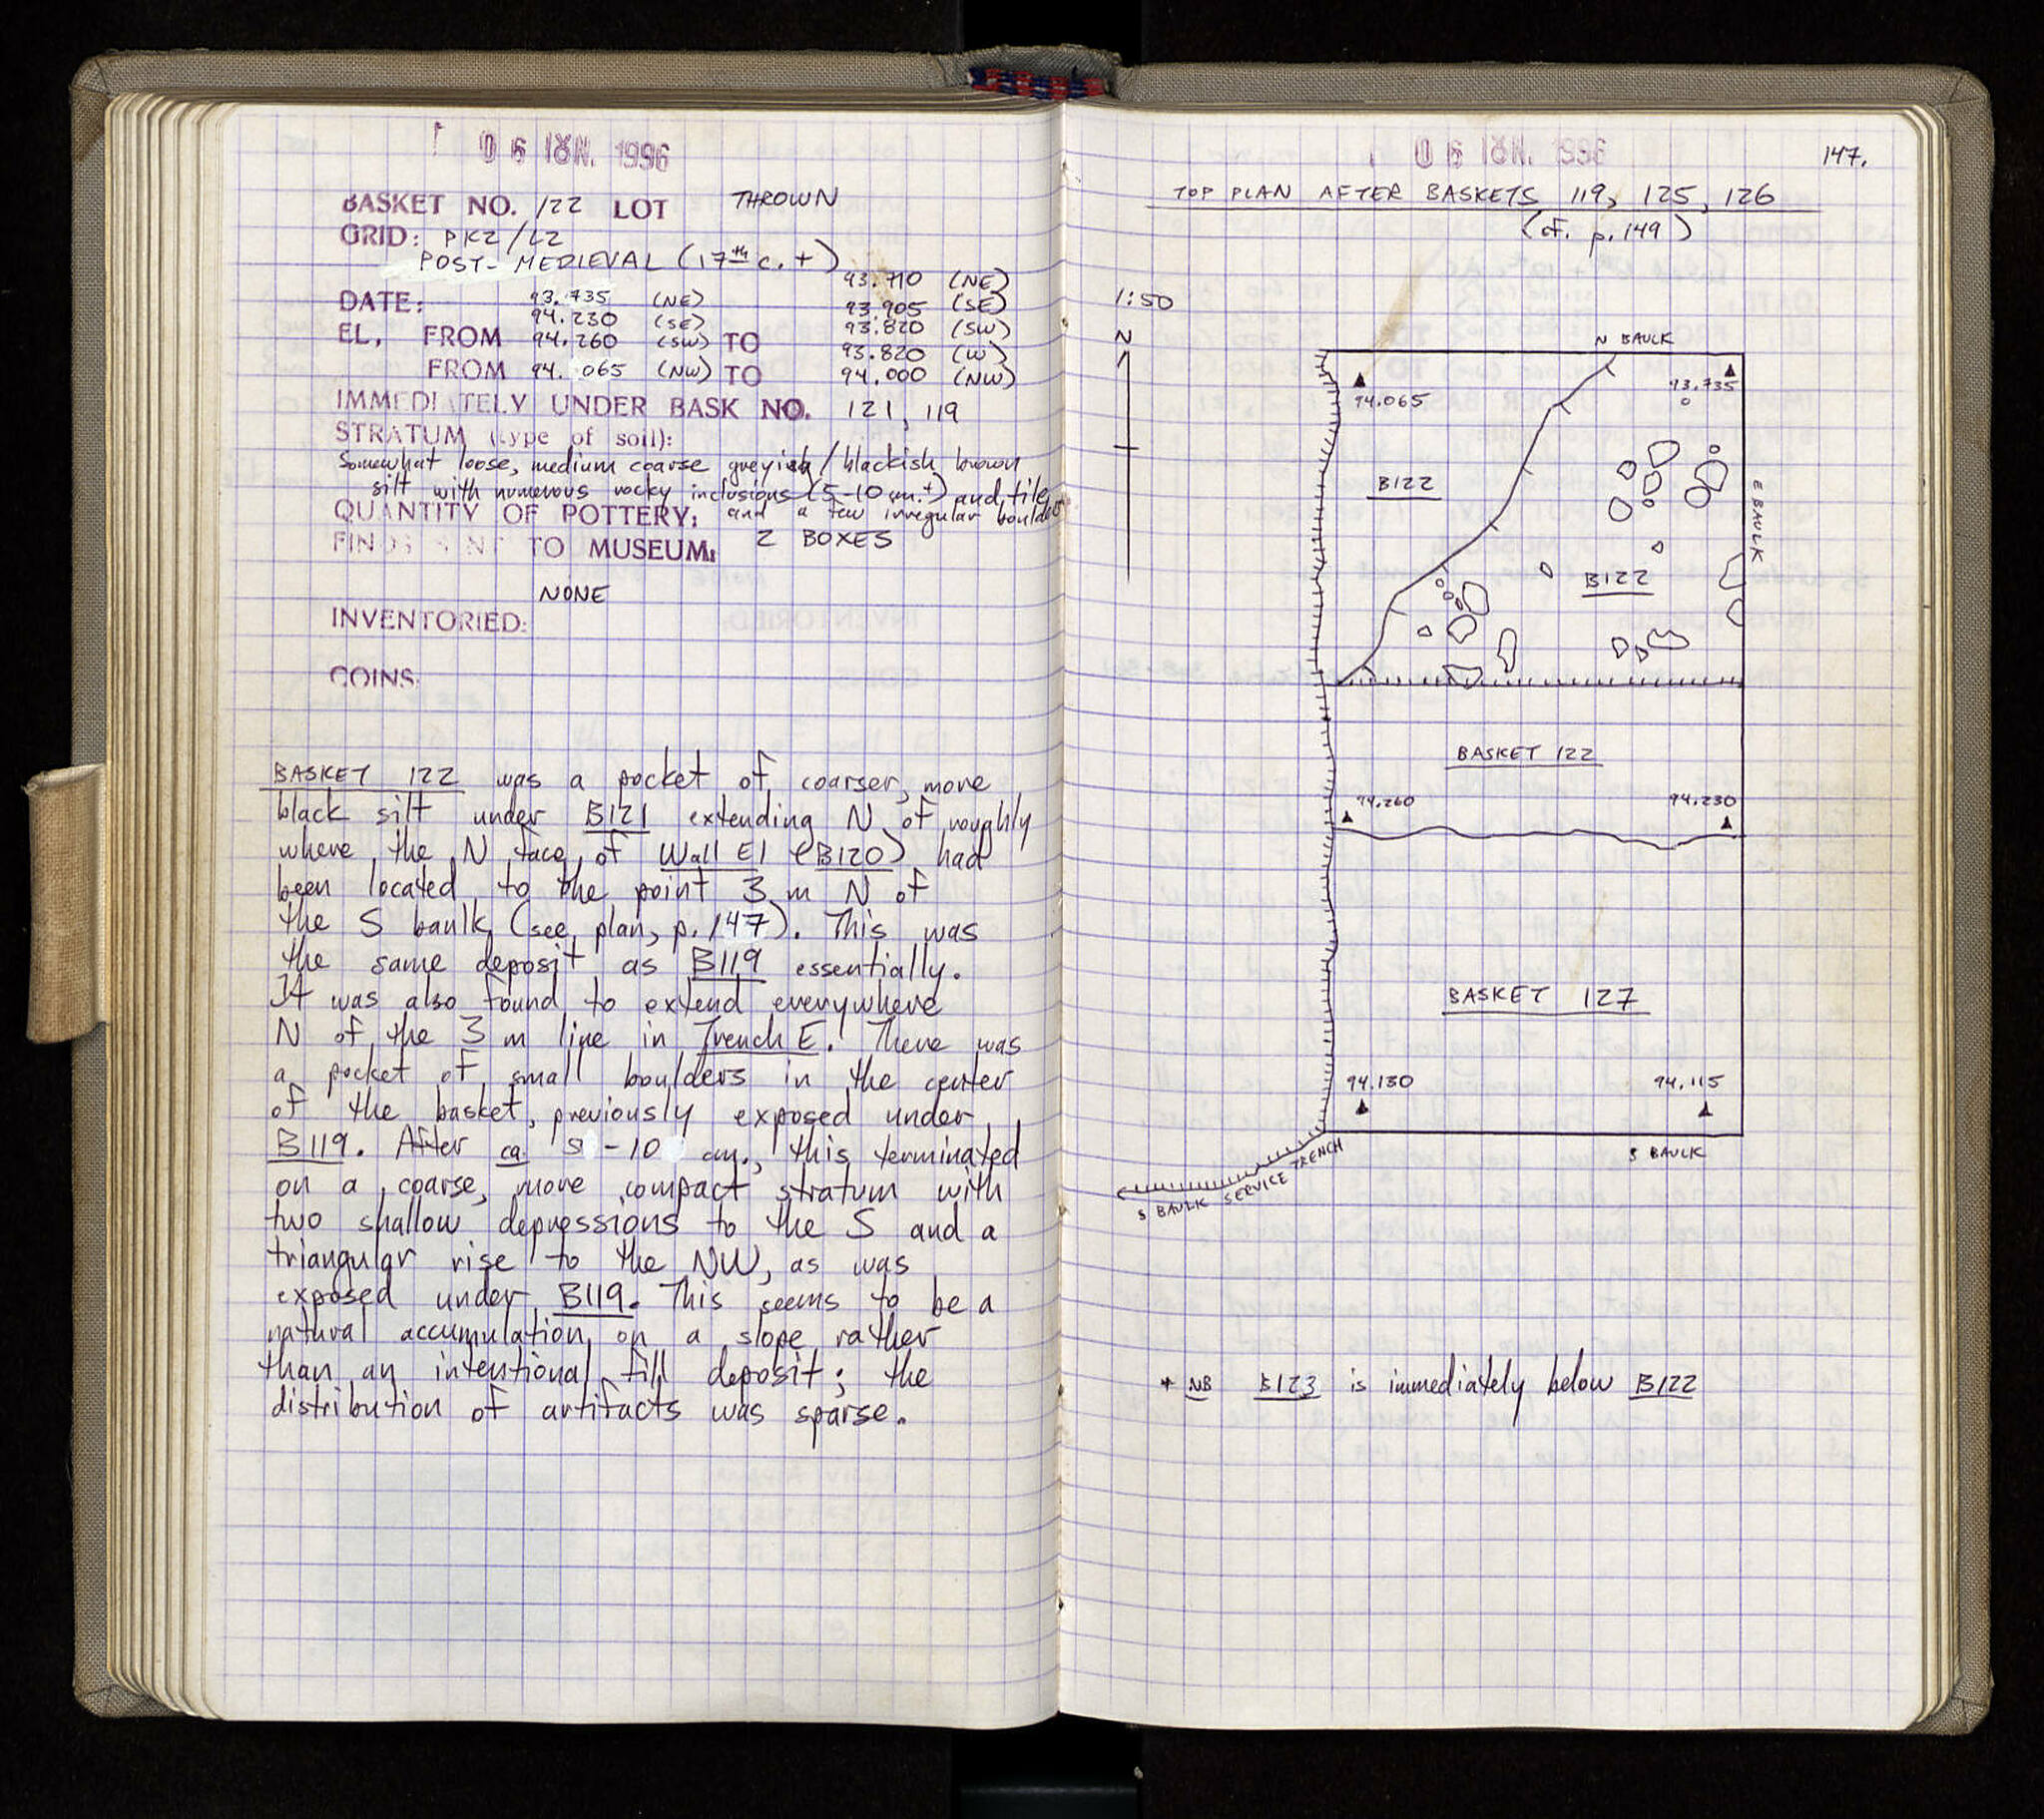 06 ΙΟΥΝ. 1996
BASKET NO. 122 LOT THROWN
GRID: PK2/L2
POST-MEDIEVAL (17th c. +)
93.710 (NE)
DATE: 93.735 (NE) 93.905 (SE)
94.230 (SE) 93.820 (SW)
EL, FROM 94.260 (SW) TO 93.820 (W)
FROM 94.065 (NW) TO 94.000 (NW)
IMMEDIATELY UNDER BASK NO. 121, 119
STRATUM (type of soil):
Somewhat loose, medium coarse greyish/blackish brown
silt with numerous rocky inclusions (5-10 cm.+) and tile
QUANTITY OF POTTERY: and a few irregular boulders
FINDS SENT TO MUSEUM: 2 BOXES
NONE
INVENTORIED:
COINS:
BASKET 122 was a pocket of coarser, more
black silt under B121 extending N of roughly
where the N face of Wall E1 (B120) had
been located to the point 3 m N of
the S baulk (see plan, p. 147). This was
the same deposit as B119 essentially.
It was also found to extend everywhere
N of the 3 m line in Trench E. There was
a pocket of small boulders in the center
of the basket, previously exposed under
B119. After ca. 5 - 10 cm., this terminated
on a coarse, more compact stratum with
two shallow depressions to the S and a
triangular rise to the NW, as was
exposed under B119. This seems to be a
natural accumulation on a slope rather
than an intentional fill deposit; the
distribution of artifacts was sparse.
06 ΙΟΥΝ. 1996
147.
TOP PLAN AFTER BASKETS 119, 125, 126
(cf. p. 149)
1:50
N
N BAULK
94.065
93.735
B122
E BAULK
B122
BASKET 122
94.260
94.230
BASKET 127
94.130
94.115
S BAULK
S BAULK SERVICE TRENCH
* NB B123 is immediately below B122